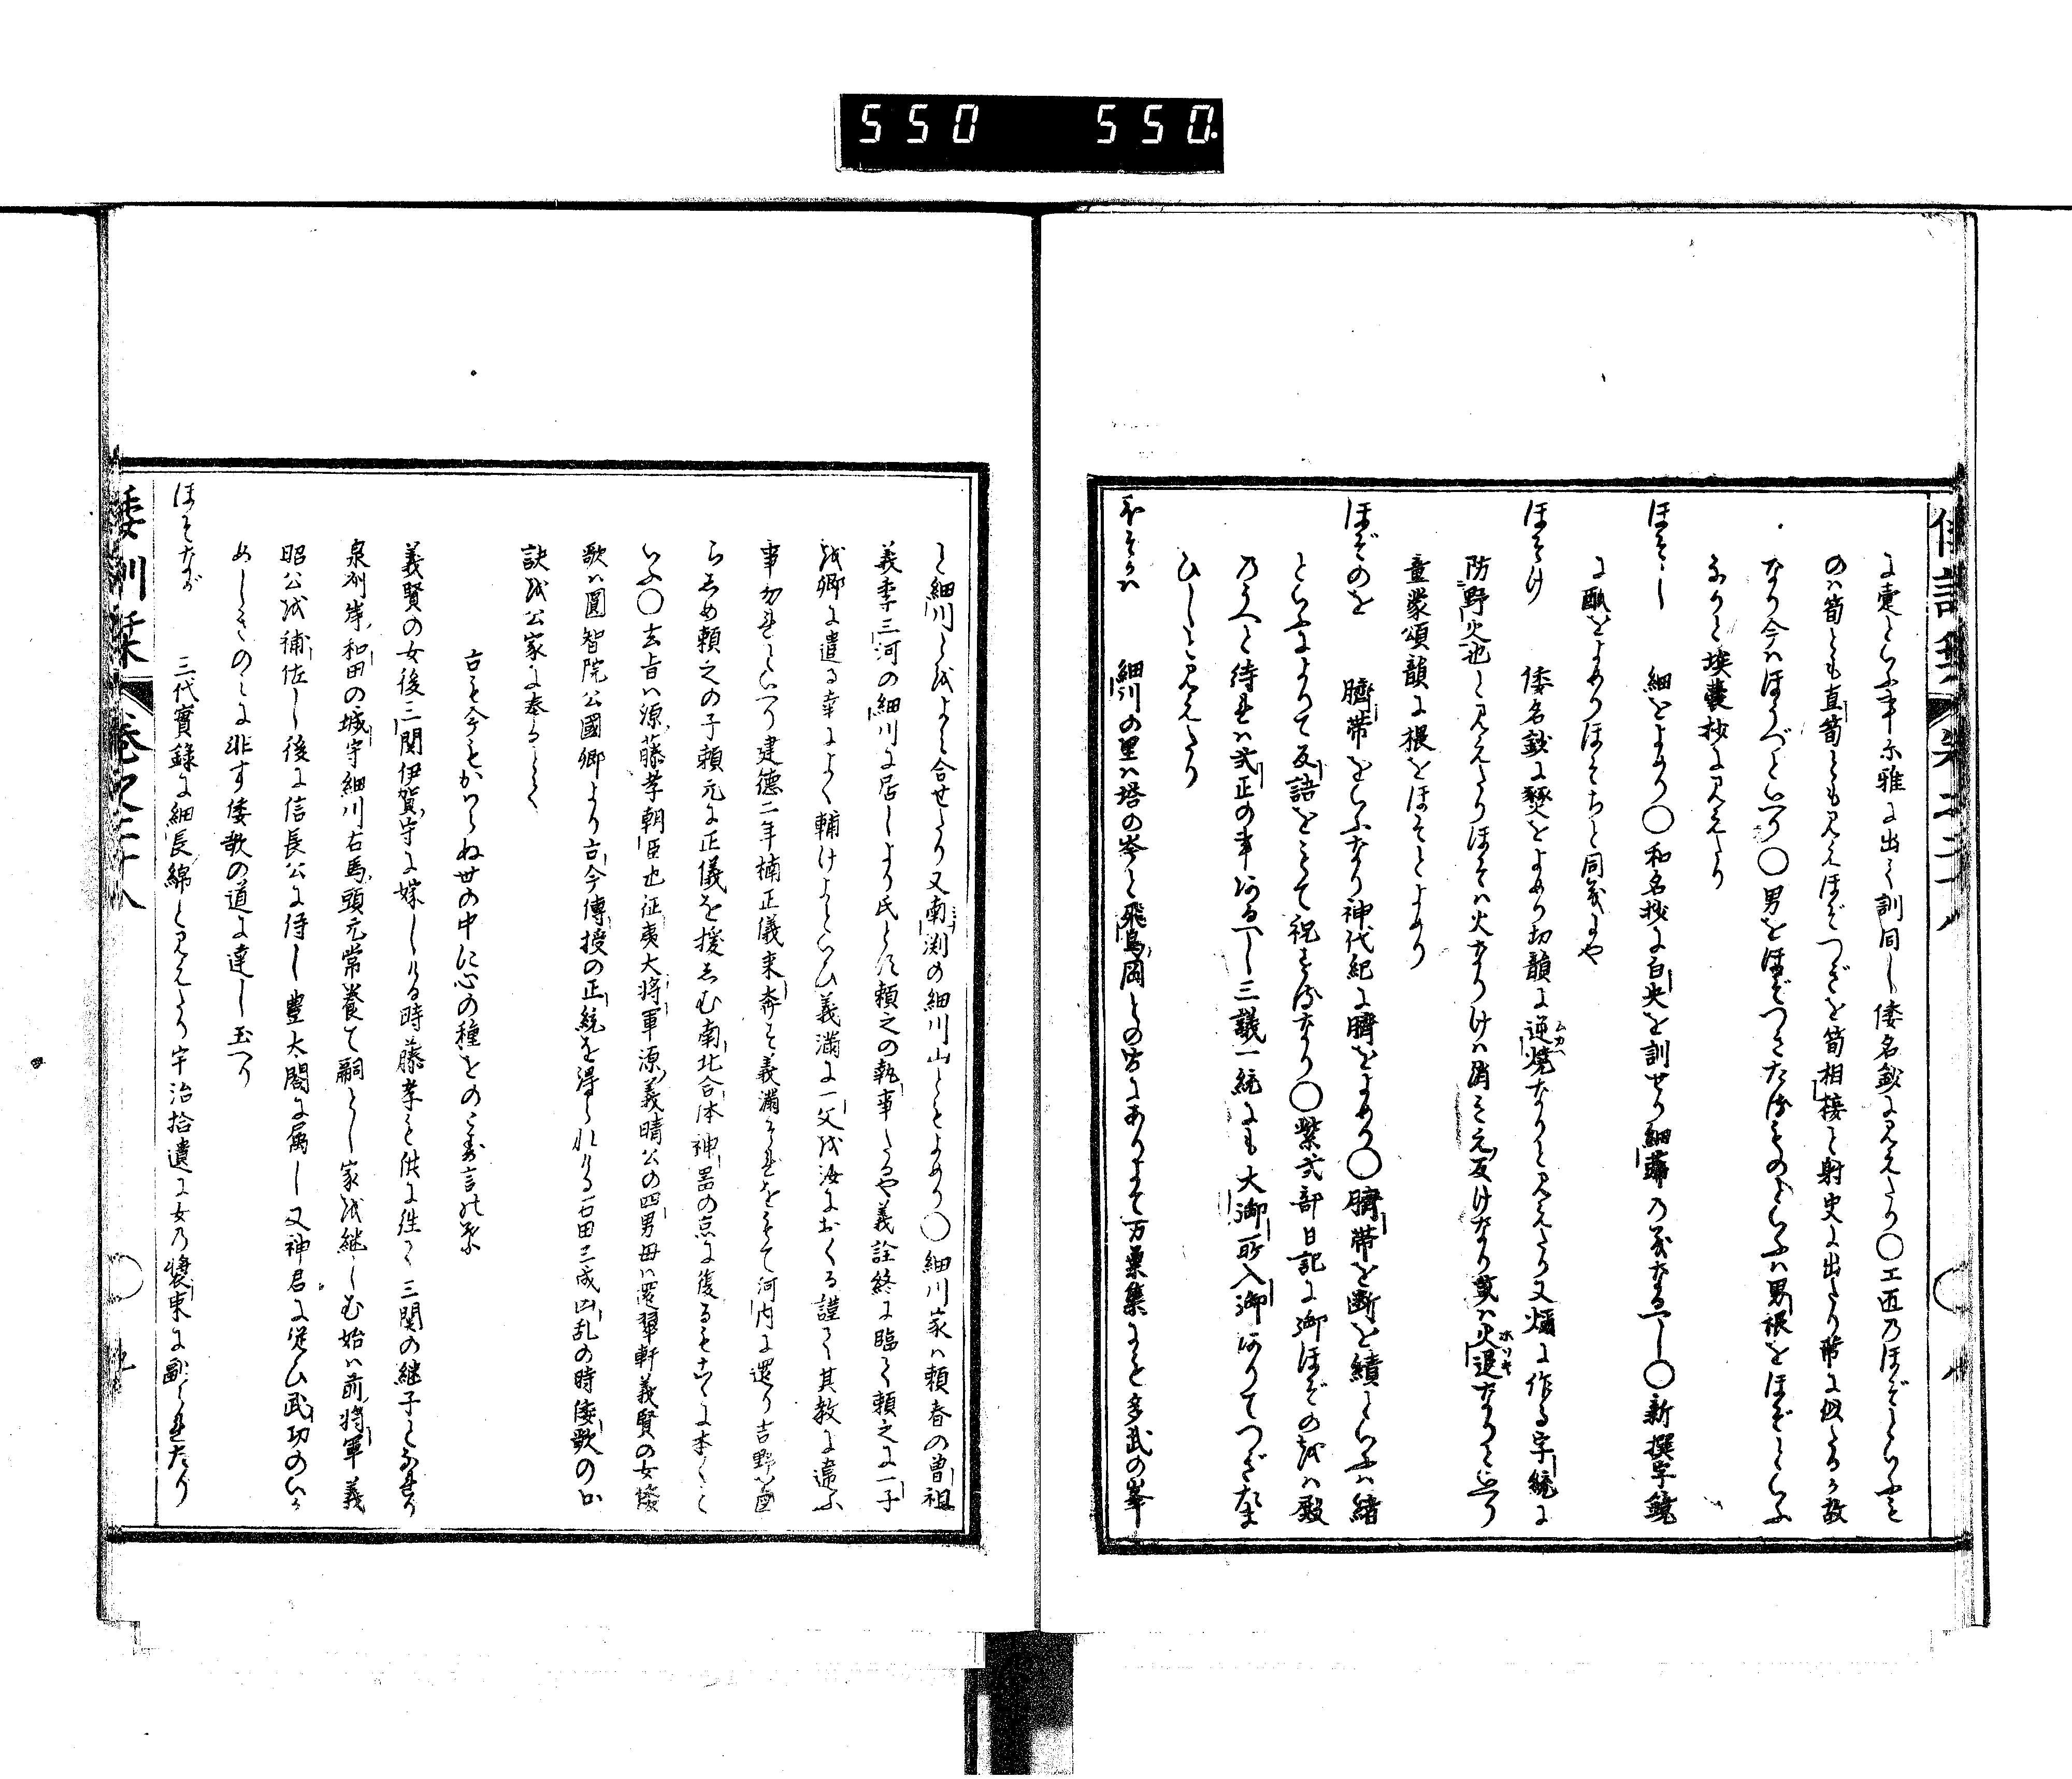 550 550
に疐といふ事尓雅に出て訓同し倭名鈔に見えたり○工匠乃ほぞといふも
のハ筍とも直筍とも見えほぞつぎを筍相接と射史に出たり帯に似たるか故
なり今ハほうべといへり○男をほぞつきたはものといふハ男根をほぞといふ
なりと埃嚢抄に見えたり
ほそし 細をよめり○和名抄に白央を訓せり細帯乃義なるへし○新撰字鏡
に瓞をよめりほそちと同義にや
ほそけ 倭名鈔に㷭をよめり切韻に逆焼なりと見えたり又熽に作る字統に
防野火也と見えたりほそハ火なりけハ消きえ反けなり或ハ火退なるを近り
童蒙頌韻に榲をほそとよめり
ほぞのを 臍帯をいふなり神代紀に臍をよめり○臍帯を断を績といふハ緒
といふによりて反語をもて祝せるなり○紫式部日記に御ほぞの緒ハ殿
乃うへと待せハ式正の事なるへし三議一統にも大御所入御ありてつぎたま
ひしと見えたり
ほそかハ 細川の里ハ塔の岑と飛鳥岡との間にありよて万葉集にも多武の峯
と細川とをよミ合せたり又南渕の細川山ともよめり○細川家ハ頼春の曽祖
義季三河の細川に居しより氏とす頼之の執事たるや義詮終に臨て頼之に一子
を卿に遣る幸によく輔けよといひ義満に一父を汝におくる謹て其教に違ふ
事勿れといへり建徳二年楠正儀来奔そ義満それをして河内に還り吉野を圖
らしめ頼之の子頼元に正儀を援しむ南北合体神器の京に復るもこゝに本くと
いふ○玄旨ハ源藤孝朝臣也征夷大将軍源義晴公の四男母ハ還翠軒義賢の女倭
歌ハ圓智院公國卿より古今傳授の正統を得られける石田三成凶乱の時倭歌の口
訣を公家に奉るとて
古も今もかハらぬ世の中に心の種をのこす言の葉
義賢の女後三関伊賀守に嫁しける時藤孝も供に往て三関の継子となれり
泉州岸和田の城守細川右馬頭元常養て嗣とし家を継しむ始ハ前将軍義
昭公を補佐し後に信長公に侍し豊太閤に属し又神君に従ひ武功のいか
めしきのミに非す倭歌の道に達し玉へり
ほそなが 三代實録に細長綿と見えたり宇治拾遺に女の装束に副られたり
倭訓栞 巻之二十八